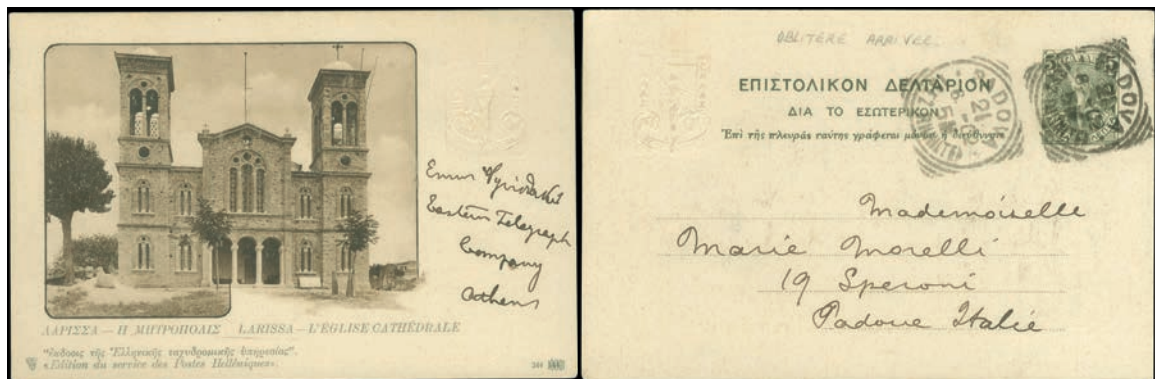 Eastern Telegraph
Company
Athens
ΛΑΡΙΣΣΑ — Η ΜΗΤΡΟΠΟΛΙΣ LARISSA — L'ÉGLISE CATHÉDRALE
"Ἔκδοσις τῆς Ἑλληνικῆς ταχυδρομικῆς ὑπηρεσίας".
«Edition du service des Postes Helléniques».
244
OBLITERE ARRIVEE
ΕΠΙΣΤΟΛΙΚΟΝ ΔΕΛΤΑΡΙΟΝ
ΔΙΑ ΤΟ ΕΣΩΤΕΡΙΚΟΝ
Ἐπὶ τῆς πλευρᾶς ταύτης γράφεται μόνον ἡ διεύθυνσις
PADOVA
21
PADOVA
Mademoiselle
Marie Morelli
19 Speroni
Padoue Italie